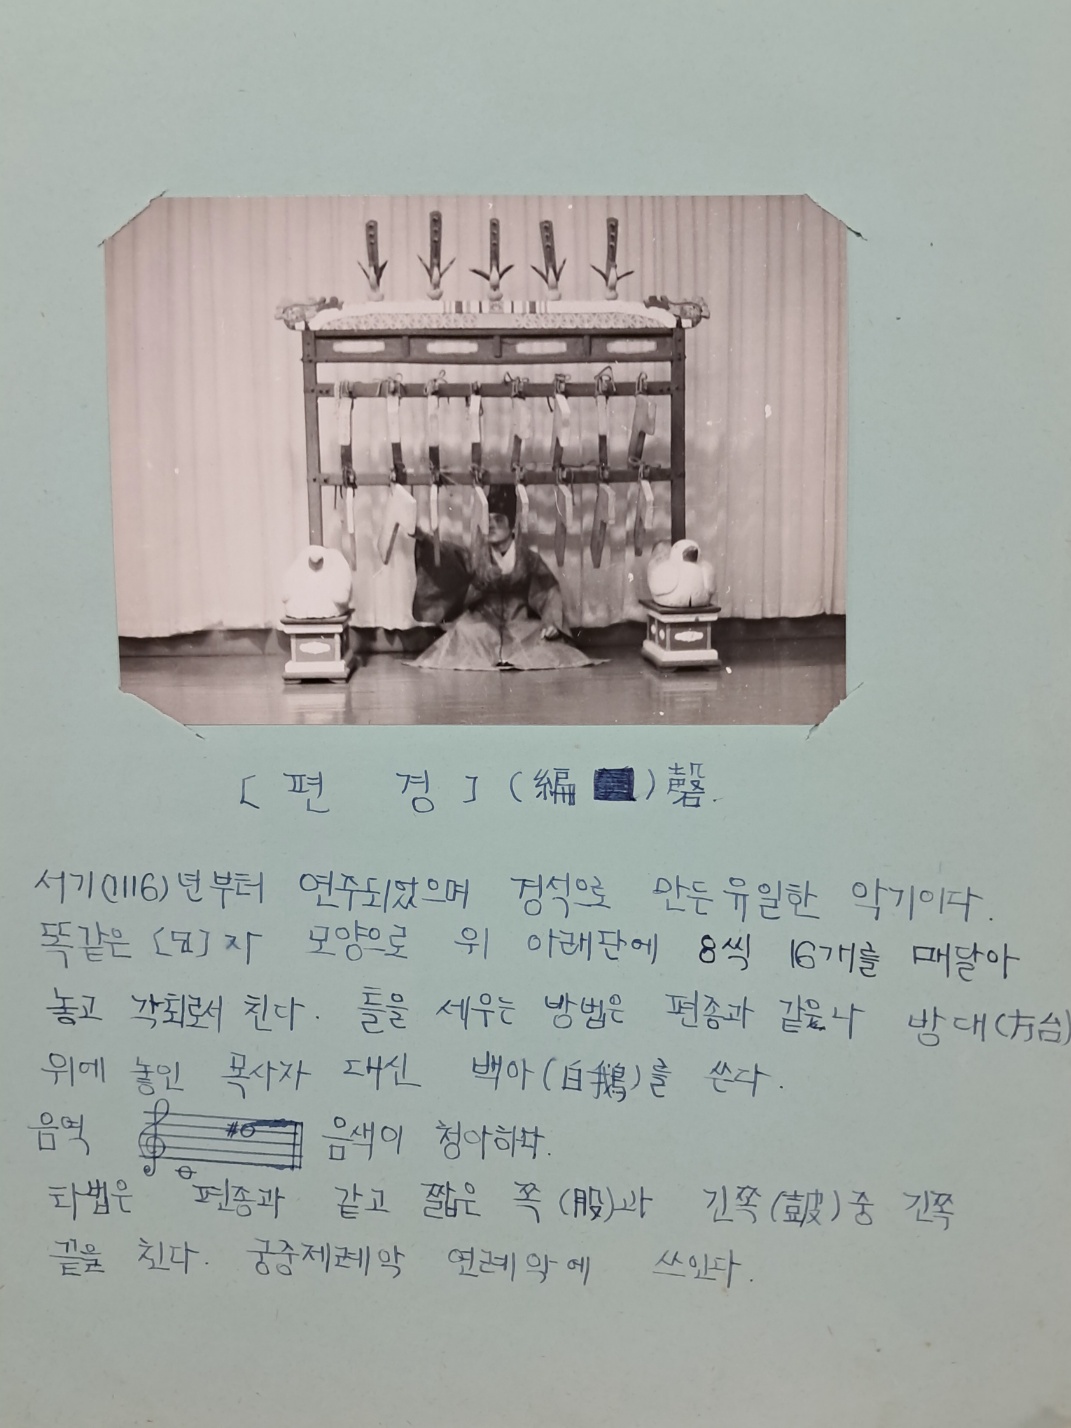 [편 경] (編 ) 磬.
서기(1116)년부터 연주되었으며 경석으로 만든 유일한 악기이다.
똑같은 [ㄱ]자 모양으로 위 아래단에 8씩 16개를 매달아
놓고 각퇴로서 친다. 틀을 세우는 방법은 편종과 같으나 방대(方台)
위에 놓인 목사자 대신 백아(白鵝)를 쓴다.
음역 음색이 청아하다.
타법은 편종과 같고 짧은 쪽(股)과 긴쪽(鼓)중 긴쪽
끝을 친다. 궁중제례악 연례악에 쓰인다.